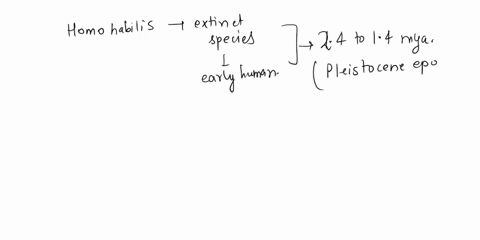 Homo habilis → extinct
species
↓
early human
→ 2.4 to 1.4 mya.
(Pleistocene epo